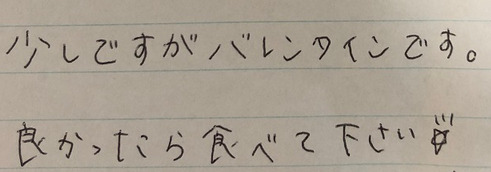 少しですがバレンタインです。
良かったら食べて下さい